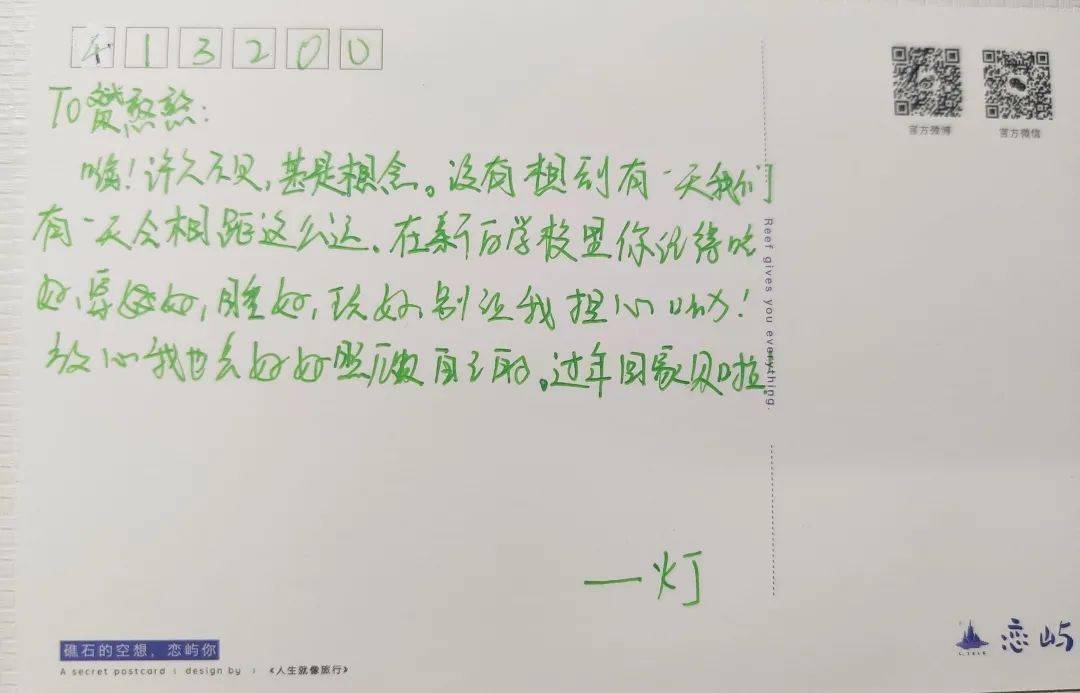 413200
To 赞憨憨:
嗨!许久不见,甚是想念。没有想到有一天我们
有一天会相距这么远、在新的学校里你记得吃
好、穿好,睡好,玩好,别让我担心哟!
放心我也会好好照顾自己的。过年回家见啦
一灯
官方微博
官方微信
Reef gives you everything.
礁石的空想,恋屿你
A secret postcard | design by : 《人生就像旅行》
恋屿